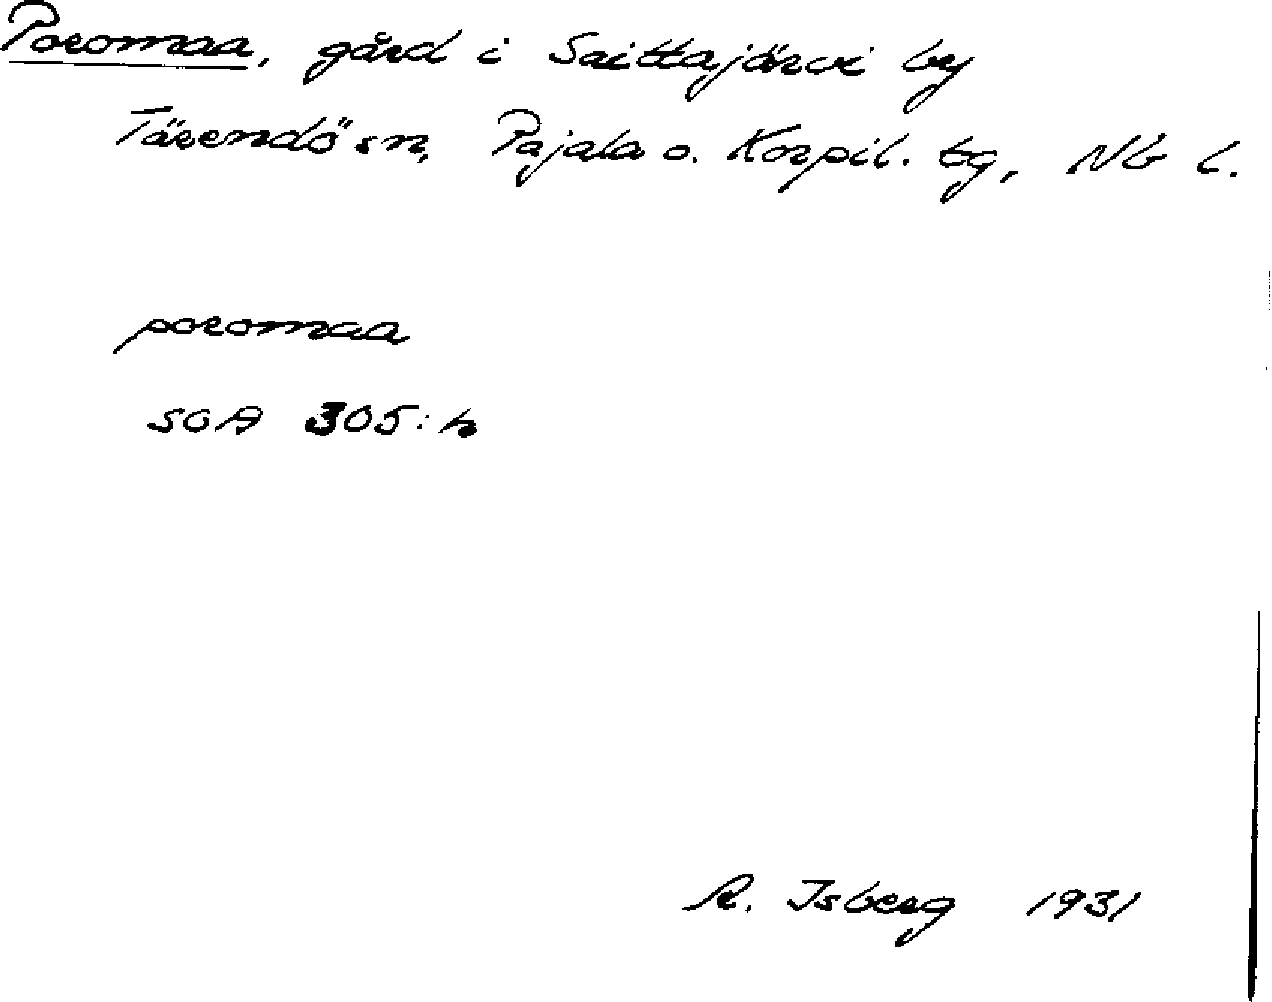 Poromaa, gård i Saittajärvi by
Tärendö sn, Pajala o. Korpil. tg, Nb l.
poromaa
SOA 305:h
R. Isberg 1931